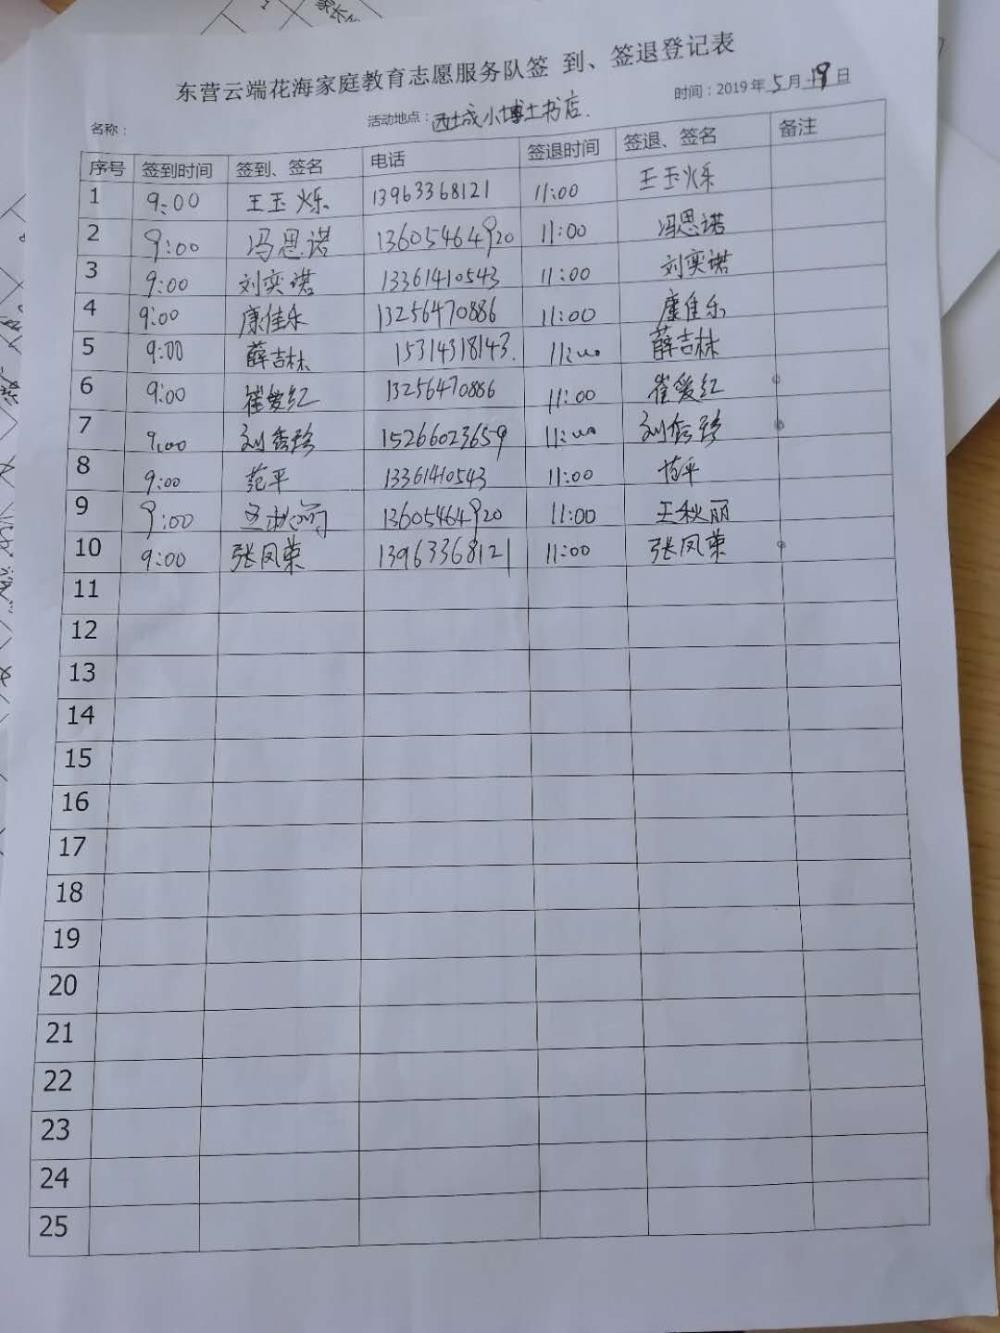 东营云端花海家庭教育志愿服务队签 到、签退登记表
名称： 活动地点：西城小博士书店. 时间：2019年5月19日
序号 签到时间 签到、签名 电话 签退时间 签退、签名 备注
1 9:00 王玉烁 13963368121 11:00 王玉烁
2 9:00 冯思诺 13605464920 11:00 冯思诺
3 9:00 刘奕诺 13361410543 11:00 刘奕诺
4 9:00 康佳乐 13256470886 11:00 康佳乐
5 9:00 薛吉林 15314318143. 11:00 薛吉林
6 9:00 崔爱红 13256470886 11:00 崔爱红
7 9:00 刘秀珍 15266023659 11:00 刘秀珍
8 9:00 范平 13361410543 11:00 范平
9 9:00 13605464920 11:00 王秋丽
10 9:00 张凤荣 13963368121 11:00 张凤荣
11
12
13
14
15
16
17
18
19
20
21
22
23
24
25